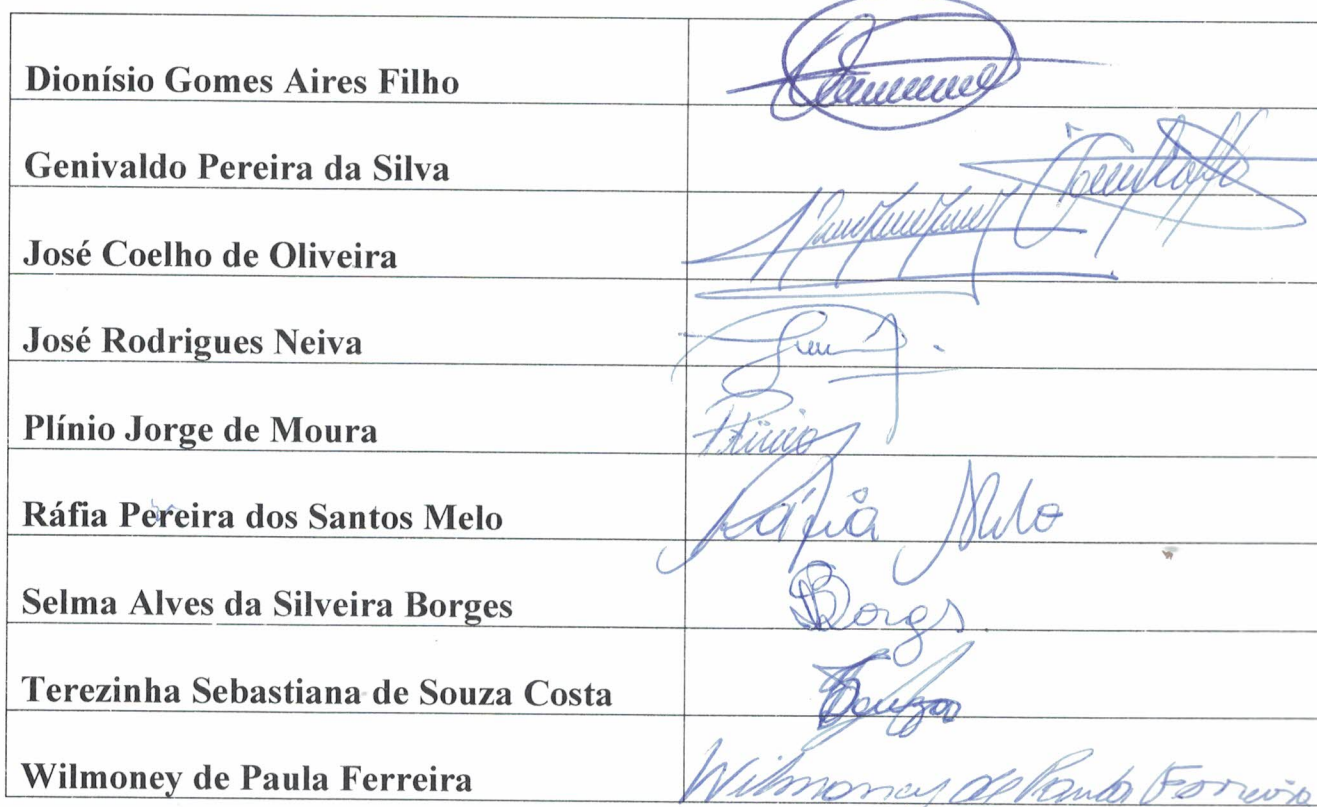 Dionísio Gomes Aires Filho
Genivaldo Pereira da Silva
José Coelho de Oliveira
José Rodrigues Neiva
Plínio Jorge de Moura Plínio
Ráfia Pereira dos Santos Melo Ráfia Melo
Selma Alves da Silveira Borges Borges
Terezinha Sebastiana de Souza Costa Souza
Wilmoney de Paula Ferreira Wilmoney de Paula Ferreira